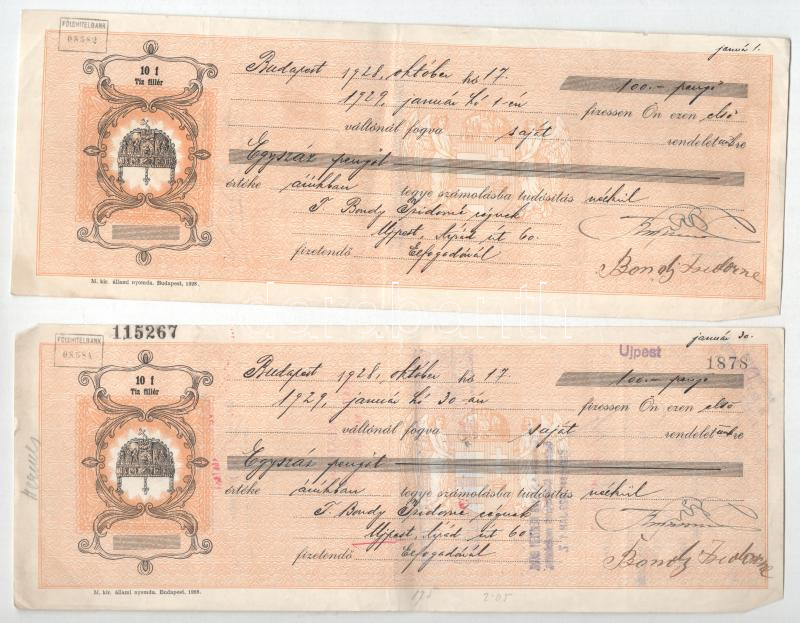 FÖLDHITELBANK
08582
január 1.
10 f
Tiz fillér
Budapest 1928, október hó 17.
100.- pengő
1929, január hó 1-én fizessen Ön ezen első
váltónál fogva saját rendelet
Egyszáz pengőt
értéke árukban tegye számolásba tudósítás nélkül
T. Bondy Izidorné cégnek
Ujpest, Árpád út 60.
fizetendő Elfogadóval
Bondy Izidorne
M. kir. állami nyomda. Budapest, 1928.
darabanth
115267
FÖLDHITELBANK
08584
január 30.
Ujpest
1878
10 f
Tiz fillér
Budapest 1928, október hó 17
100.- pengő
1929, január hó 30-án fizessen Ön ezen első
váltónál fogva saját rendelet
Egyszáz pengőt
értéke árukban tegye számolásba tudósítás nélkül
T. Bondy Izidorné cégnek
Ujpest, Árpád út 60.
fizetendő Elfogadóval
Bondy Izidorne
M. kir. állami nyomda. Budapest, 1928.